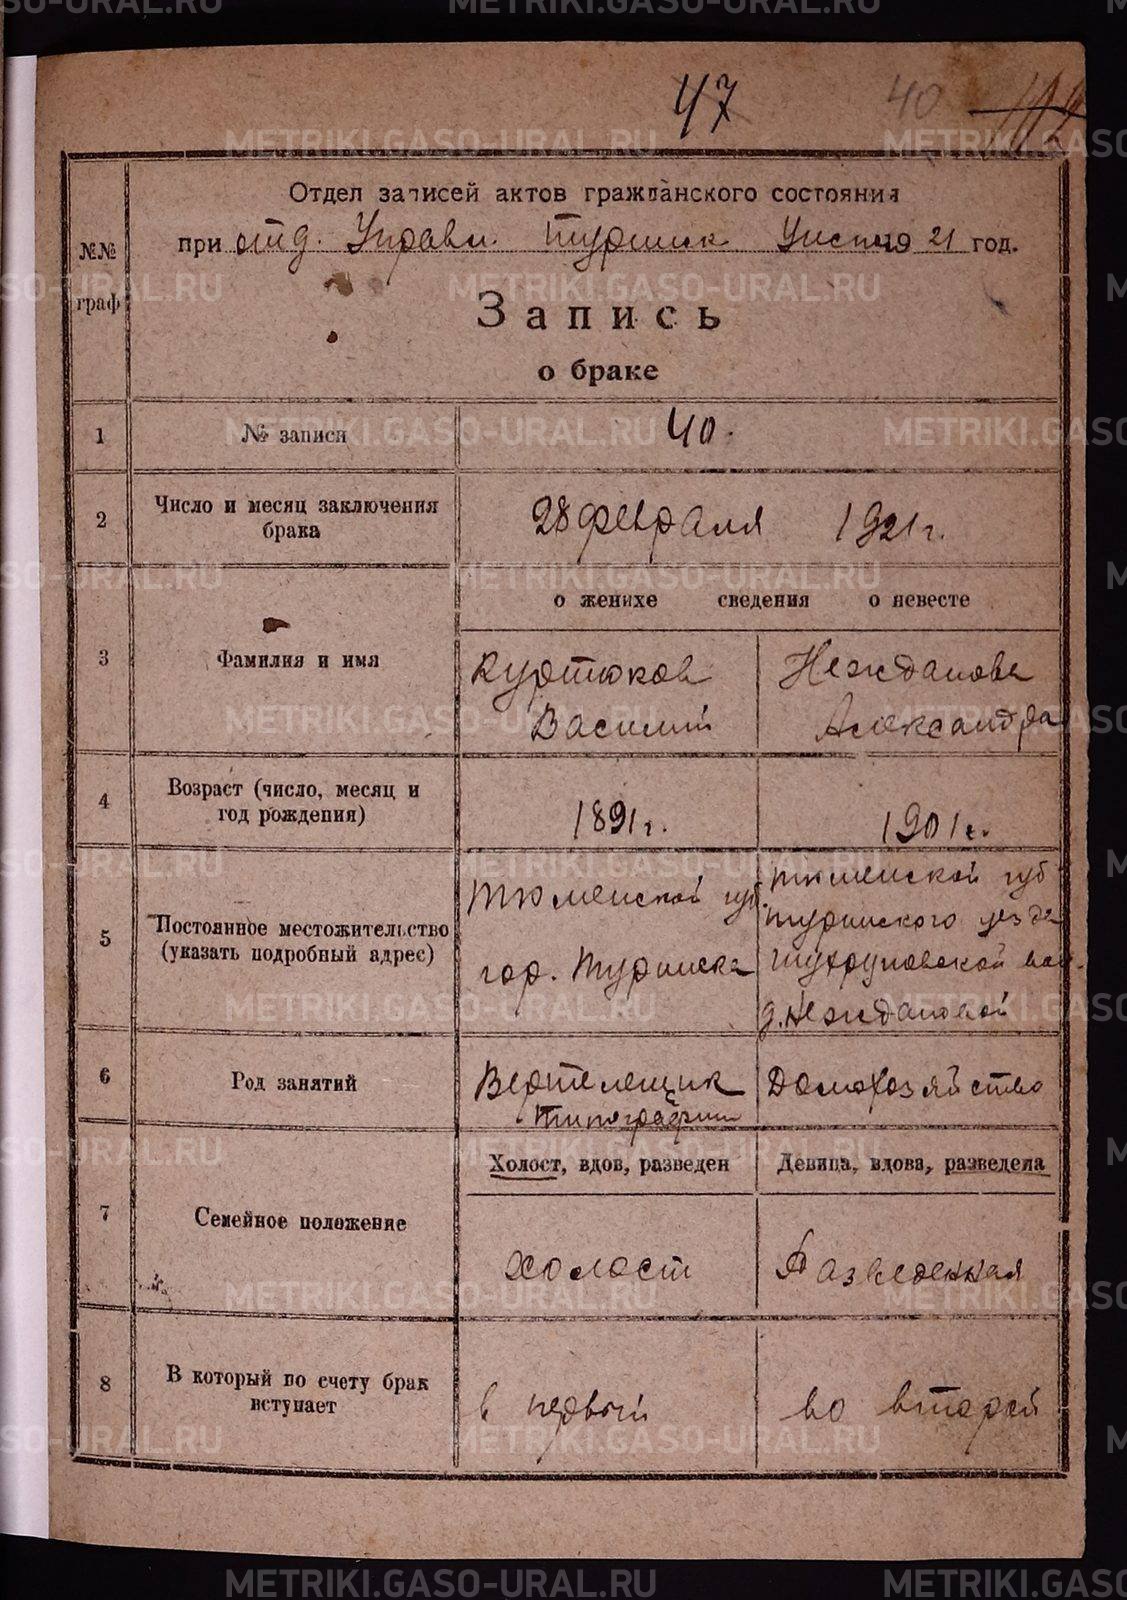 47 40 102
Отдел записей актов гражданского состояния
при отд. Управл. Туринск Уиспк 1921 год.
№№
граф
Запись
о браке
1 № записи 40.
2 Число и месяц заключения
брака
28 февраля 1921 г.
о женихе сведения о невесте
3 Фамилия и имя
Куртюков
Василий
Нежданова
Александра
4 Возраст (число, месяц и
год рождения)
1891 г. 1901 г.
5 Постоянное местожительство
(указать подробный адрес)
Тюменской губ.
гор. Туринска
Тюменской губ
Туринского уезда
вол.
д. Неждановой
6 Род занятий
Вертельщик
типографии
Домохозяйство
7 Семейное положение
Холост, вдов, разведен
Девица, вдова, разведена
холост Разведенная
8 В который по счету брак
вступает
в первый во второй
METRIKI.GASO-URAL.RU